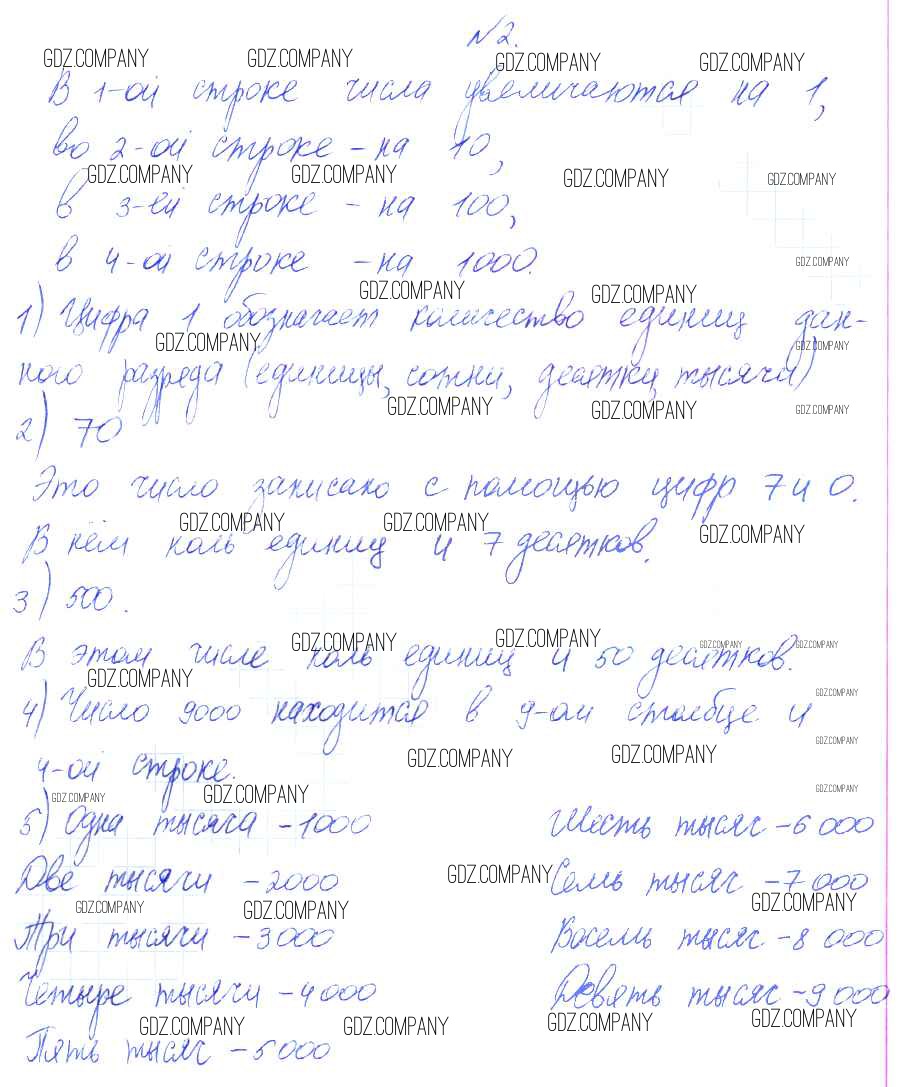 №2.
В 1-ой строке числа увеличаются на 1,
во 2-ой строке - на 10,
в 3-ей строке - на 100,
в 4-ой строке - на 1000.
1) Цифра 1 обозначает количество единиц дан-
ного разреда (единицы, сотни, десятки, тысячи)
2) 70
Это число записано с помощью цифр 7 и 0.
В нём ноль единиц и 7 десятков.
3) 500.
В этом числе ноль единиц и 50 десятков.
4) Число 9000 находится в 9-ом столбце и
4-ой строке.
5) Одна тысяча - 1000 Шесть тысяч - 6 000
Две тысячи - 2000 Семь тысяч - 7 000
Три тысячи - 3000 Восемь тысяч - 8 000
Четыре тысячи - 4000 Девять тысяч - 9 000
Пять тысяч - 5000
GDZ.COMPANY